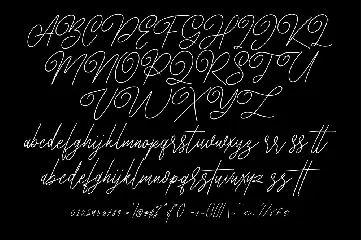 ABCDEFGHIJKL
MNOPQRSTU
VWXYZ
abcdefghijklmnopqrstuvwxyz rr ss tt
abcdefghijklmnopqrstuvwxyz ss tt
0123456789